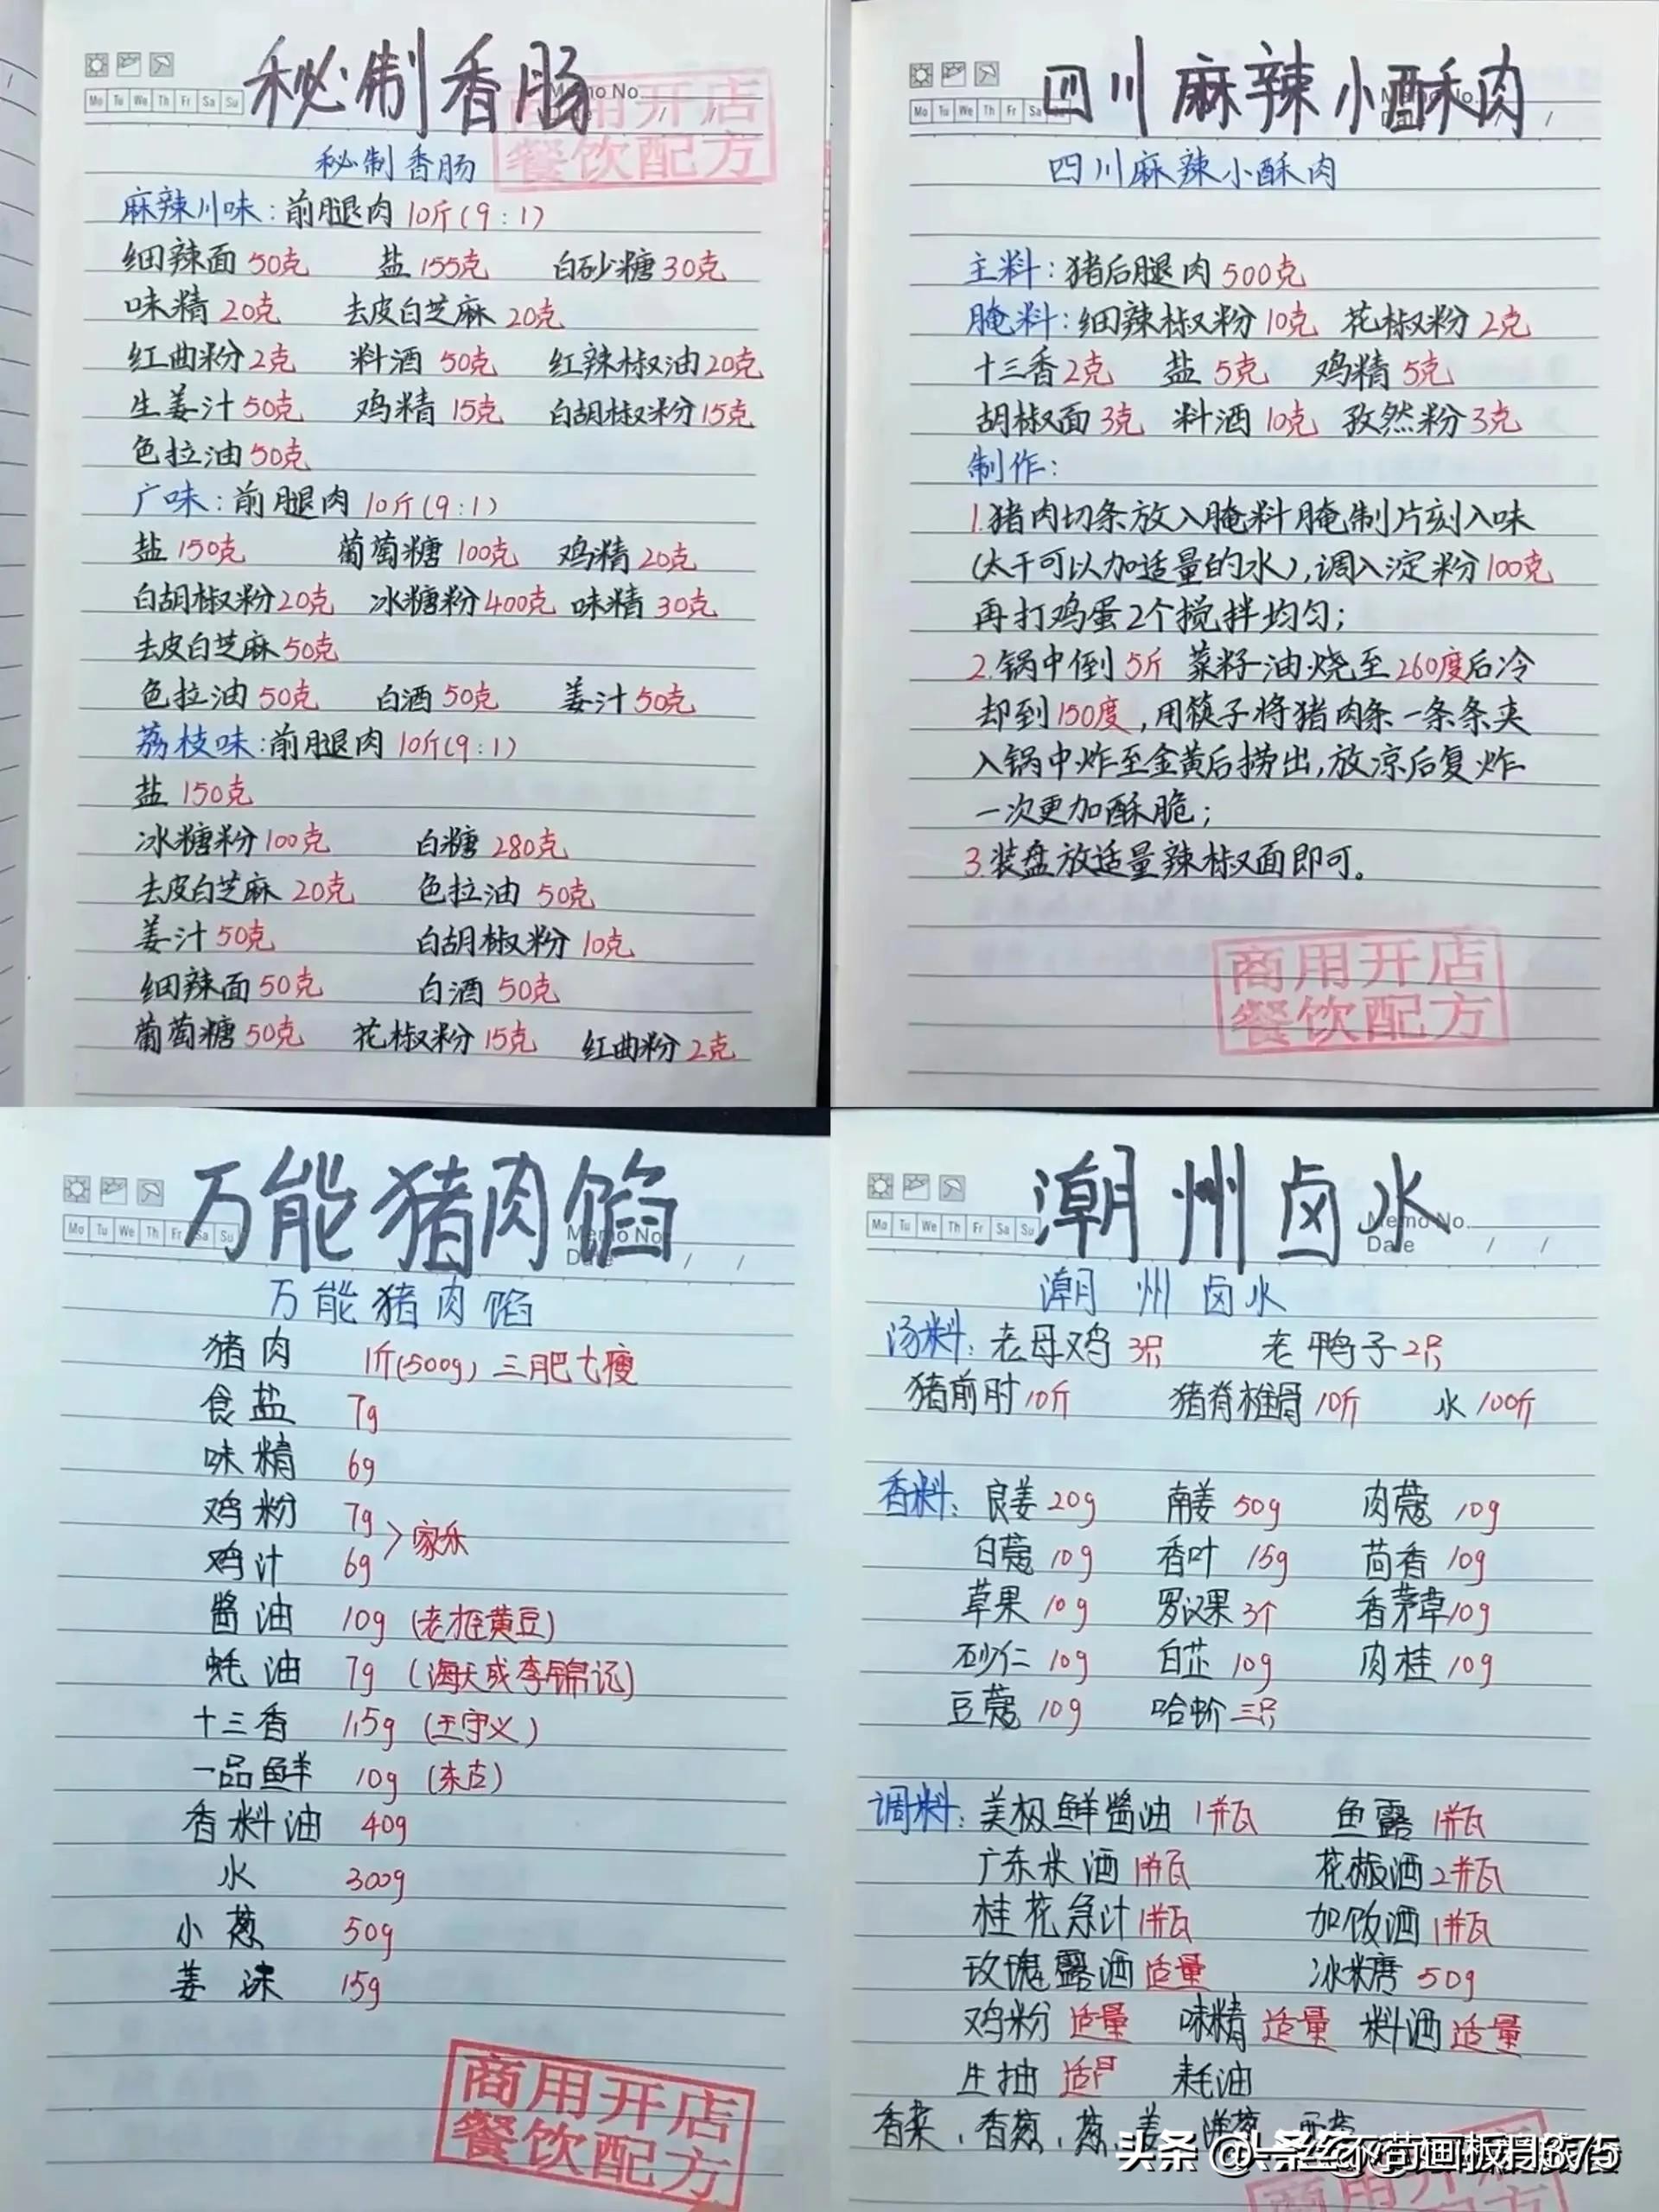 秘制香肠
Memo No.
Mo Tu We Th Fr Sa Su
商用开店
餐饮配方
秘制香肠
麻辣川味:前腿肉10斤(9:1)
细辣面50克 盐155克 白砂糖30克
味精20克 去皮白芝麻20克
红曲粉2克 料酒50克 红辣椒油20克
生姜汁50克 鸡精15克 白胡椒粉15克
色拉油50克
广味:前腿肉10斤(9:1)
盐150克 葡萄糖100克 鸡精20克
白胡椒粉20克 冰糖粉400克 味精30克
去皮白芝麻50克
色拉油50克 白酒50克 姜汁50克
荔枝味:前腿肉10斤(9:1)
盐150克
冰糖粉100克 白糖280克
去皮白芝麻20克 色拉油50克
姜汁50克 白胡椒粉10克
细辣面50克 白酒50克
葡萄糖50克 花椒粉15克 红曲粉2克
四川麻辣小酥肉
Mo Tu We Th Fr Sa
四川麻辣小酥肉
主料:猪后腿肉500克
腌料:细辣椒粉10克 花椒粉2克
十三香2克 盐5克 鸡精5克
胡椒面3克 料酒10克 孜然粉3克
制作:
1.猪肉切条放入腌料腌制片刻入味
(太干可以加适量的水),调入淀粉100克
再打鸡蛋2个搅拌均匀;
2.锅中倒5斤 菜籽油烧至260度后冷
却到150度,用筷子将猪肉条一条条夹
入锅中炸至金黄后捞出,放凉后复炸
一次更加酥脆;
3.装盘放适量辣椒面即可。
商用开店
餐饮配方
万能猪肉馅
Mo Tu We Th Fr Sa Su
Memo No
Date
万能猪肉馅
猪肉 1斤(500g)三肥七瘦
食盐 7g
味精 6g
鸡粉 7g
家乐
鸡汁 6g
酱油 10g(老恒黄豆)
蚝油 7g(海天或李锦记)
十三香 1.5g(王守义)
一品鲜 10g(东古)
香料油 40g
水 300g
小葱 50g
姜沫 15g
商用开店
餐饮配方
潮州卤水
Mo Tu We Th Fr Sa Su
Memo No.
Date
潮州卤水
汤料:老母鸡3只 老鸭子2只
猪前肘10斤 猪脊椎骨10斤 水100斤
香料:良姜20g 南姜50g 肉蔻10g
白蔻10g 香叶15g 茴香10g
草果10g 罗汉果3个 香茅草10g
砂仁10g 白芷10g 肉桂10g
豆蔻10g 哈蚧三只
调料:美极鲜酱油1瓶 鱼露1瓶
广东米酒1瓶 花椒酒2瓶
桂花急汁1瓶 加饭酒1瓶
玫瑰露酒适量 冰糖50g
鸡粉适量 味精适量 料酒适量
生抽 耗油
香菜,香葱,葱,姜
头条